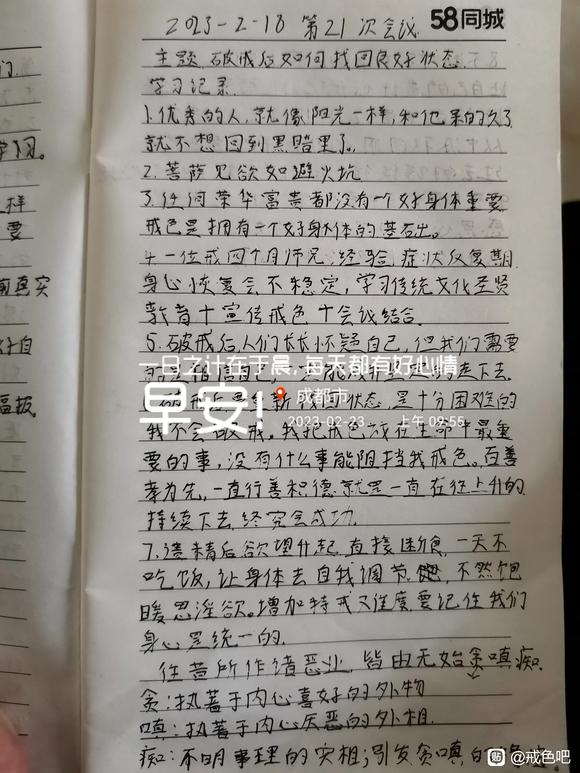 58同城
2023-2-18 第21次会议
主题 破戒后如何找回良好状态.
学习记录
1.优秀的人,就像阳光一样,和他呆的久了
就不想回到黑暗里了。
2.菩萨见欲如避火坑
3.任何荣华富贵都没有一个好身体重要
戒色是拥有一个好身体的基础。
4.一位戒四个月师兄 经验,症状反复期
身心恢复会不稳定,学习传统文化圣贤
教育+宣传戒色+会议结合.
5.破戒后人们长长怀疑自己,但我们需要
一日之计在于晨,每天都有好心情
早安!
成都市
2023-02-23 上午 09:55
新找回状态,是十分困难的
我不会破戒。我把戒色放在生命中最重
要的事,没有什么事能阻挡我戒色。百善
孝为先,一直行善积德就是一直在往上升的
持续下去,终究会成功.
7.遗精后欲望升起,直接断食,一天不
吃饭,让身体去自我调节,不然饱
暖忍淫欲。增加持戒难度,要记住我们
身心是统一的.
往昔所作诸恶业,皆由无始贪嗔痴.
贪:执著于内心喜好的外物
嗔:执著于内心厌恶的外相.
痴:不明事理的实相;引发贪嗔的
字风。
样
要
真实
自
@戒色吧